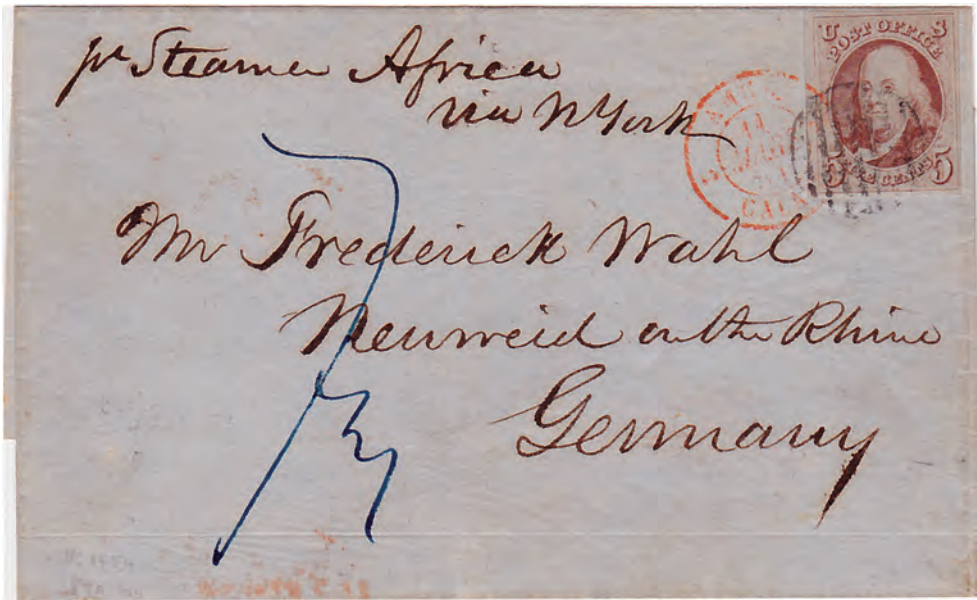 pr Steamer Africa
via N York
U S
POST OFFICE
5 FIVE CENTS 5
CALAIS
Mr Frederick Wahl
Neuweid on the Rhine
Germany